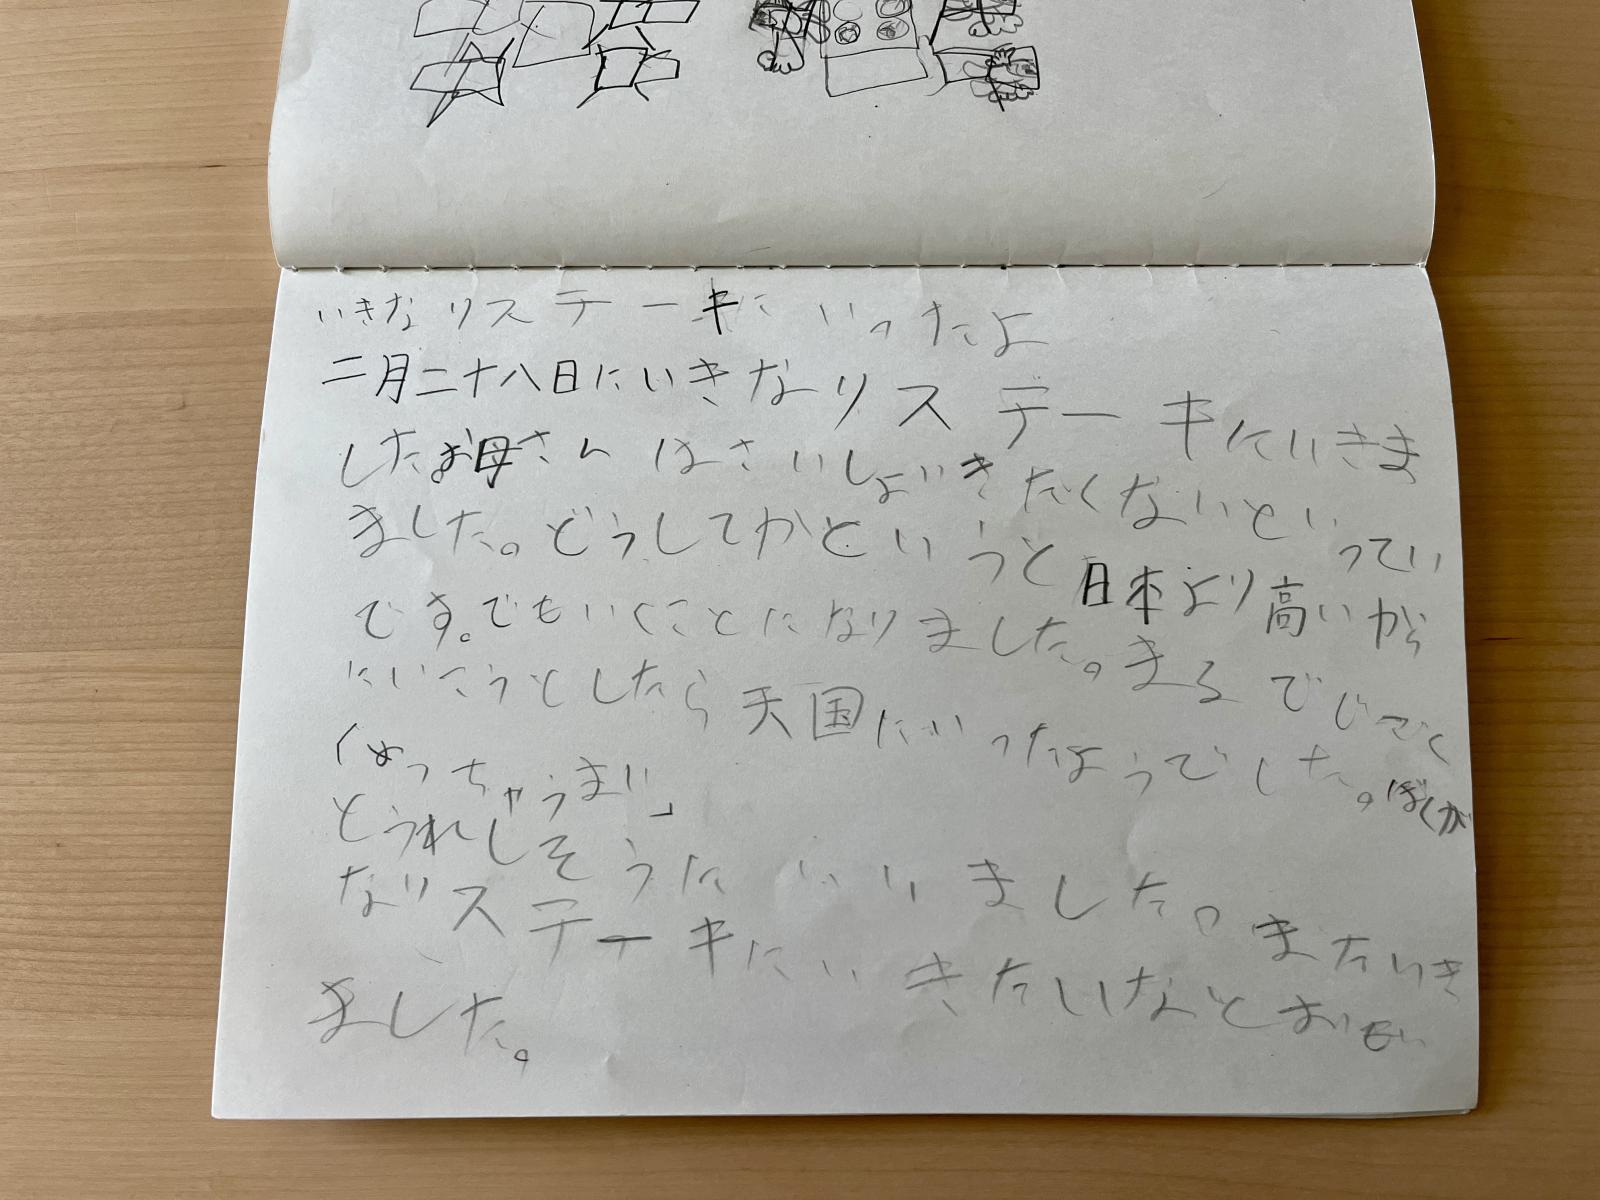 いきなりステーキにいったよ
二月二十八日にいきなりステーキにいきま
したお母さんはさいしょいきたくないといってい
ました。どうしてかというと日本より高いから
です。でもいくことになりました。まるでじごく
にいこうとしたら天国にいったようでした。ぼくが
「めっちゃうまい」
とうれしそうにいいました。またいき
なりステーキにいきたいなとおもい
ました。